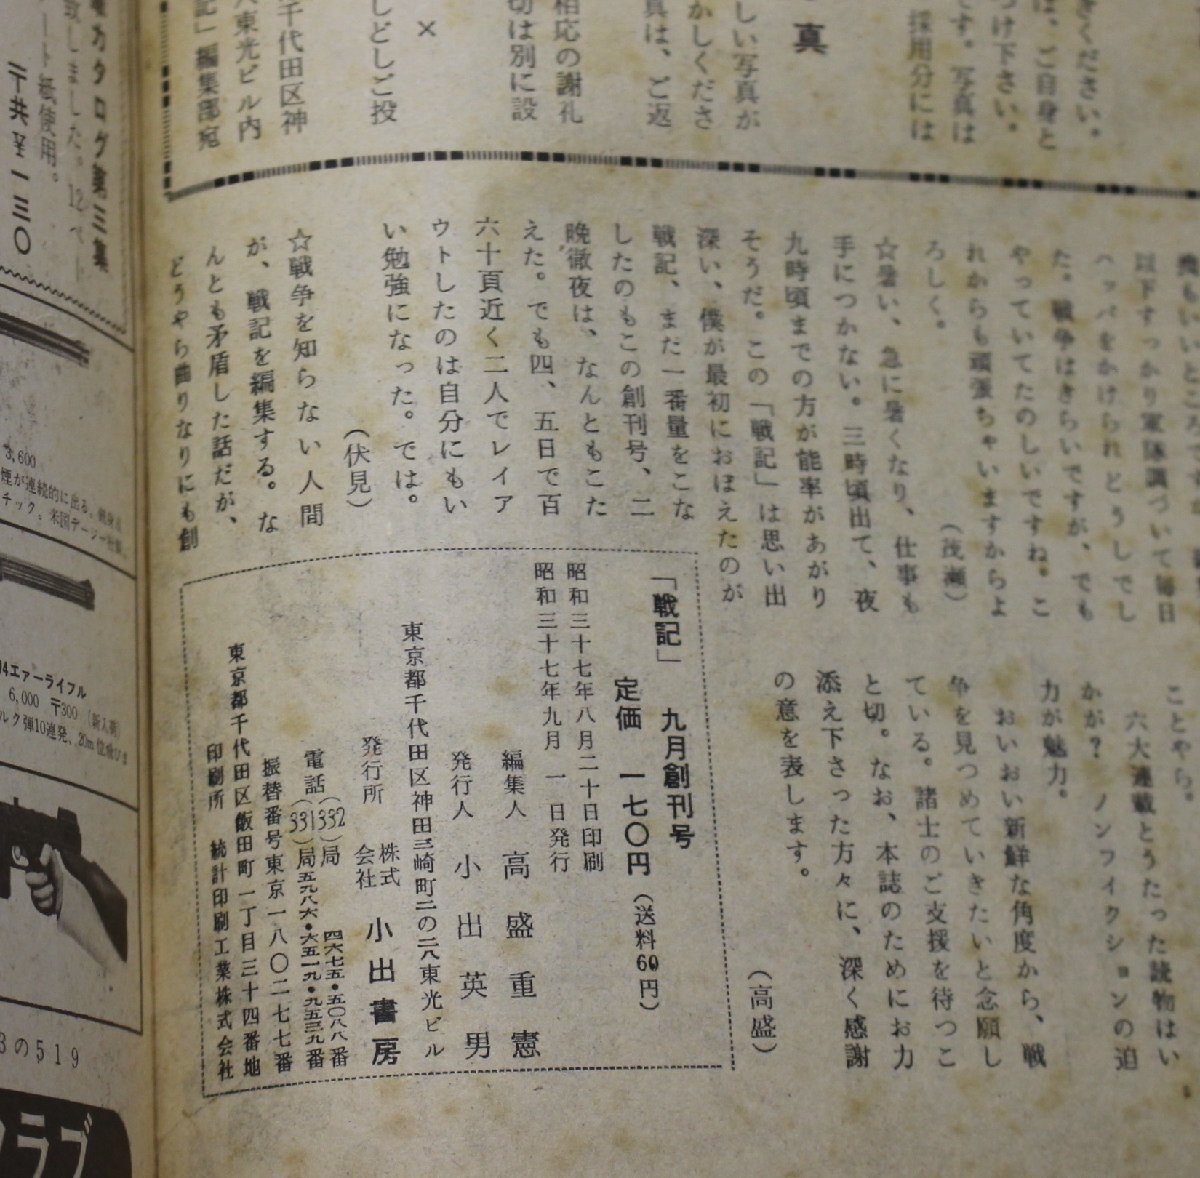 きください。
は、ご自身と
つけ下さい。
です。写真は
採用分には
真
しい写真が
かしくださ
真は、ご返
相応の謝礼
切は別に設
×
しどしご投
千代田区神
東光ビル内
記」編集部宛
以下すっかり軍隊調づいて毎日
ハッパをかけられどうしでし
た。戦争はきらいですが、でも
やっていてたのしいですね。こ
れからも頑張ちゃいますからよ
ろしく。
☆暑い、急に暑くなり、仕事も
手につかない。三時頃出て、夜
九時頃までの方が能率があがり
そうだ。この「戦記」は思い出
深い、僕が最初におぼえたのが
戦記、また一番量をこな
したのもこの創刊号、二
晩徹夜は、なんともこた
えた。でも四、五日で百
六十頁近く二人でレイア
ウトしたのは自分にもい
い勉強になった。では。
(伏見)
☆戦争を知らない人間
が、戦記を編集する。な
んとも矛盾した話だが、
どうやら曲りなりにも創
ことやら。
六大連載とうたった読物はい
かが? ノンフィクションの迫
力が魅力。
おいおい新鮮な角度から、戦
争を見つめていきたいと念願し
ている。諸士のご支援を待つこ
と切。なお、本誌のためにお力
添え下さった方々に、深く感謝
の意を表します。
(高盛)
「戦記」 九月創刊号
定価 一七〇円(送料60円)
昭和三十七年八月二十日印刷
昭和三十七年九月 一 日発行
編集人 高盛重憲
発行人 小出英男
東京都千代田区神田三崎町二の二八東光ビル
発行所 株式会社 小出書房
電話(332)局 四六七五・五〇八八番
(331)局五九八六・六五一九・九五三九番
振替番号東京一八〇二七七番
東京都千代田区飯田町一丁目三十四番地
印刷所 統計印刷工業株式会社
カタログ第三集
致しました。12ペー
ート紙使用。
3,600
煙が連続的に出る。
4エアーライフル
6,000 〒300
ルク弾10連発、20m
3の519
ラブ